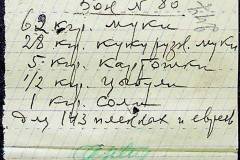 Бон № 80
62 кгр. муки
28 кгр. кукурузн. муки
5 кгр. картошки
1/2 кгр. цыбули
1 кгр. соли
для 143 пленных и евреев